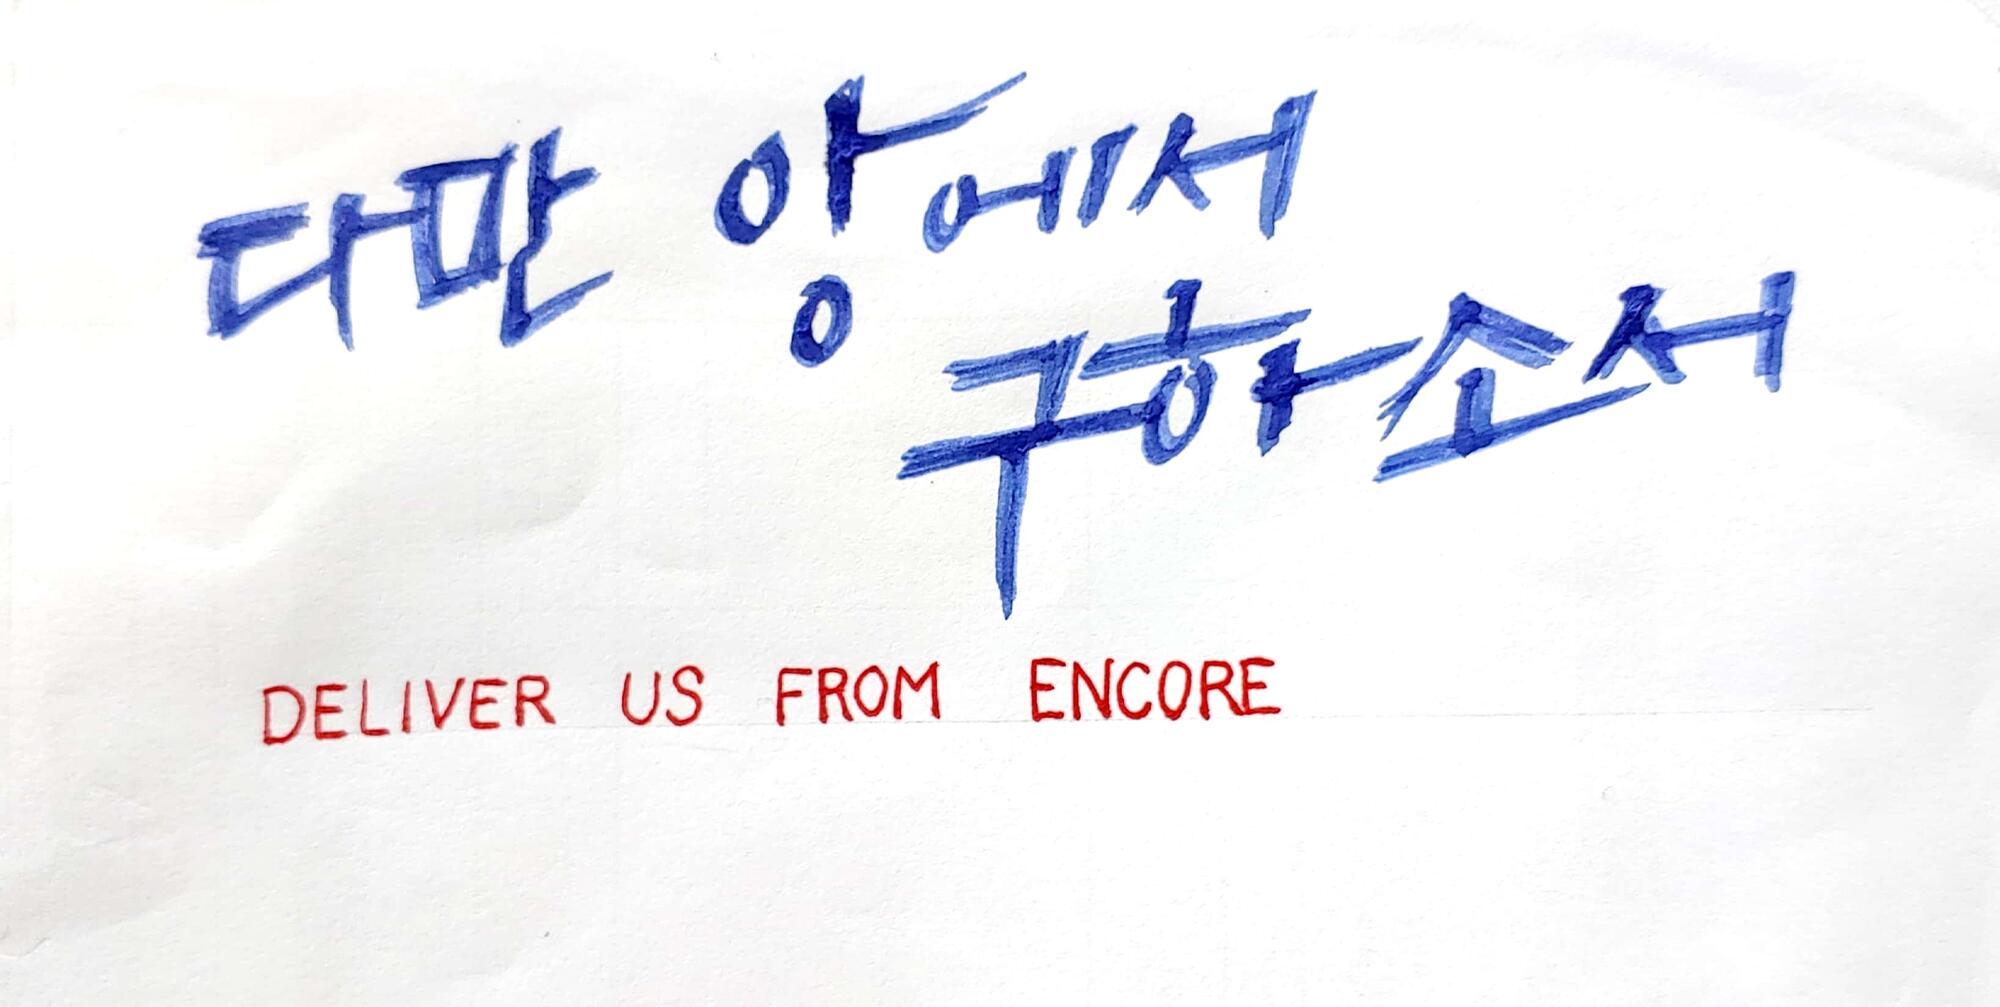 다만 앙에서
구하소서
DELIVER US FROM ENCORE